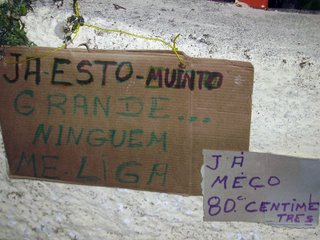 JA-ESTO-MUINTO
GRANDE...
NINGUEM
ME.LIGA
JÁ
MÉÇO
80.C CENTIME
TRES